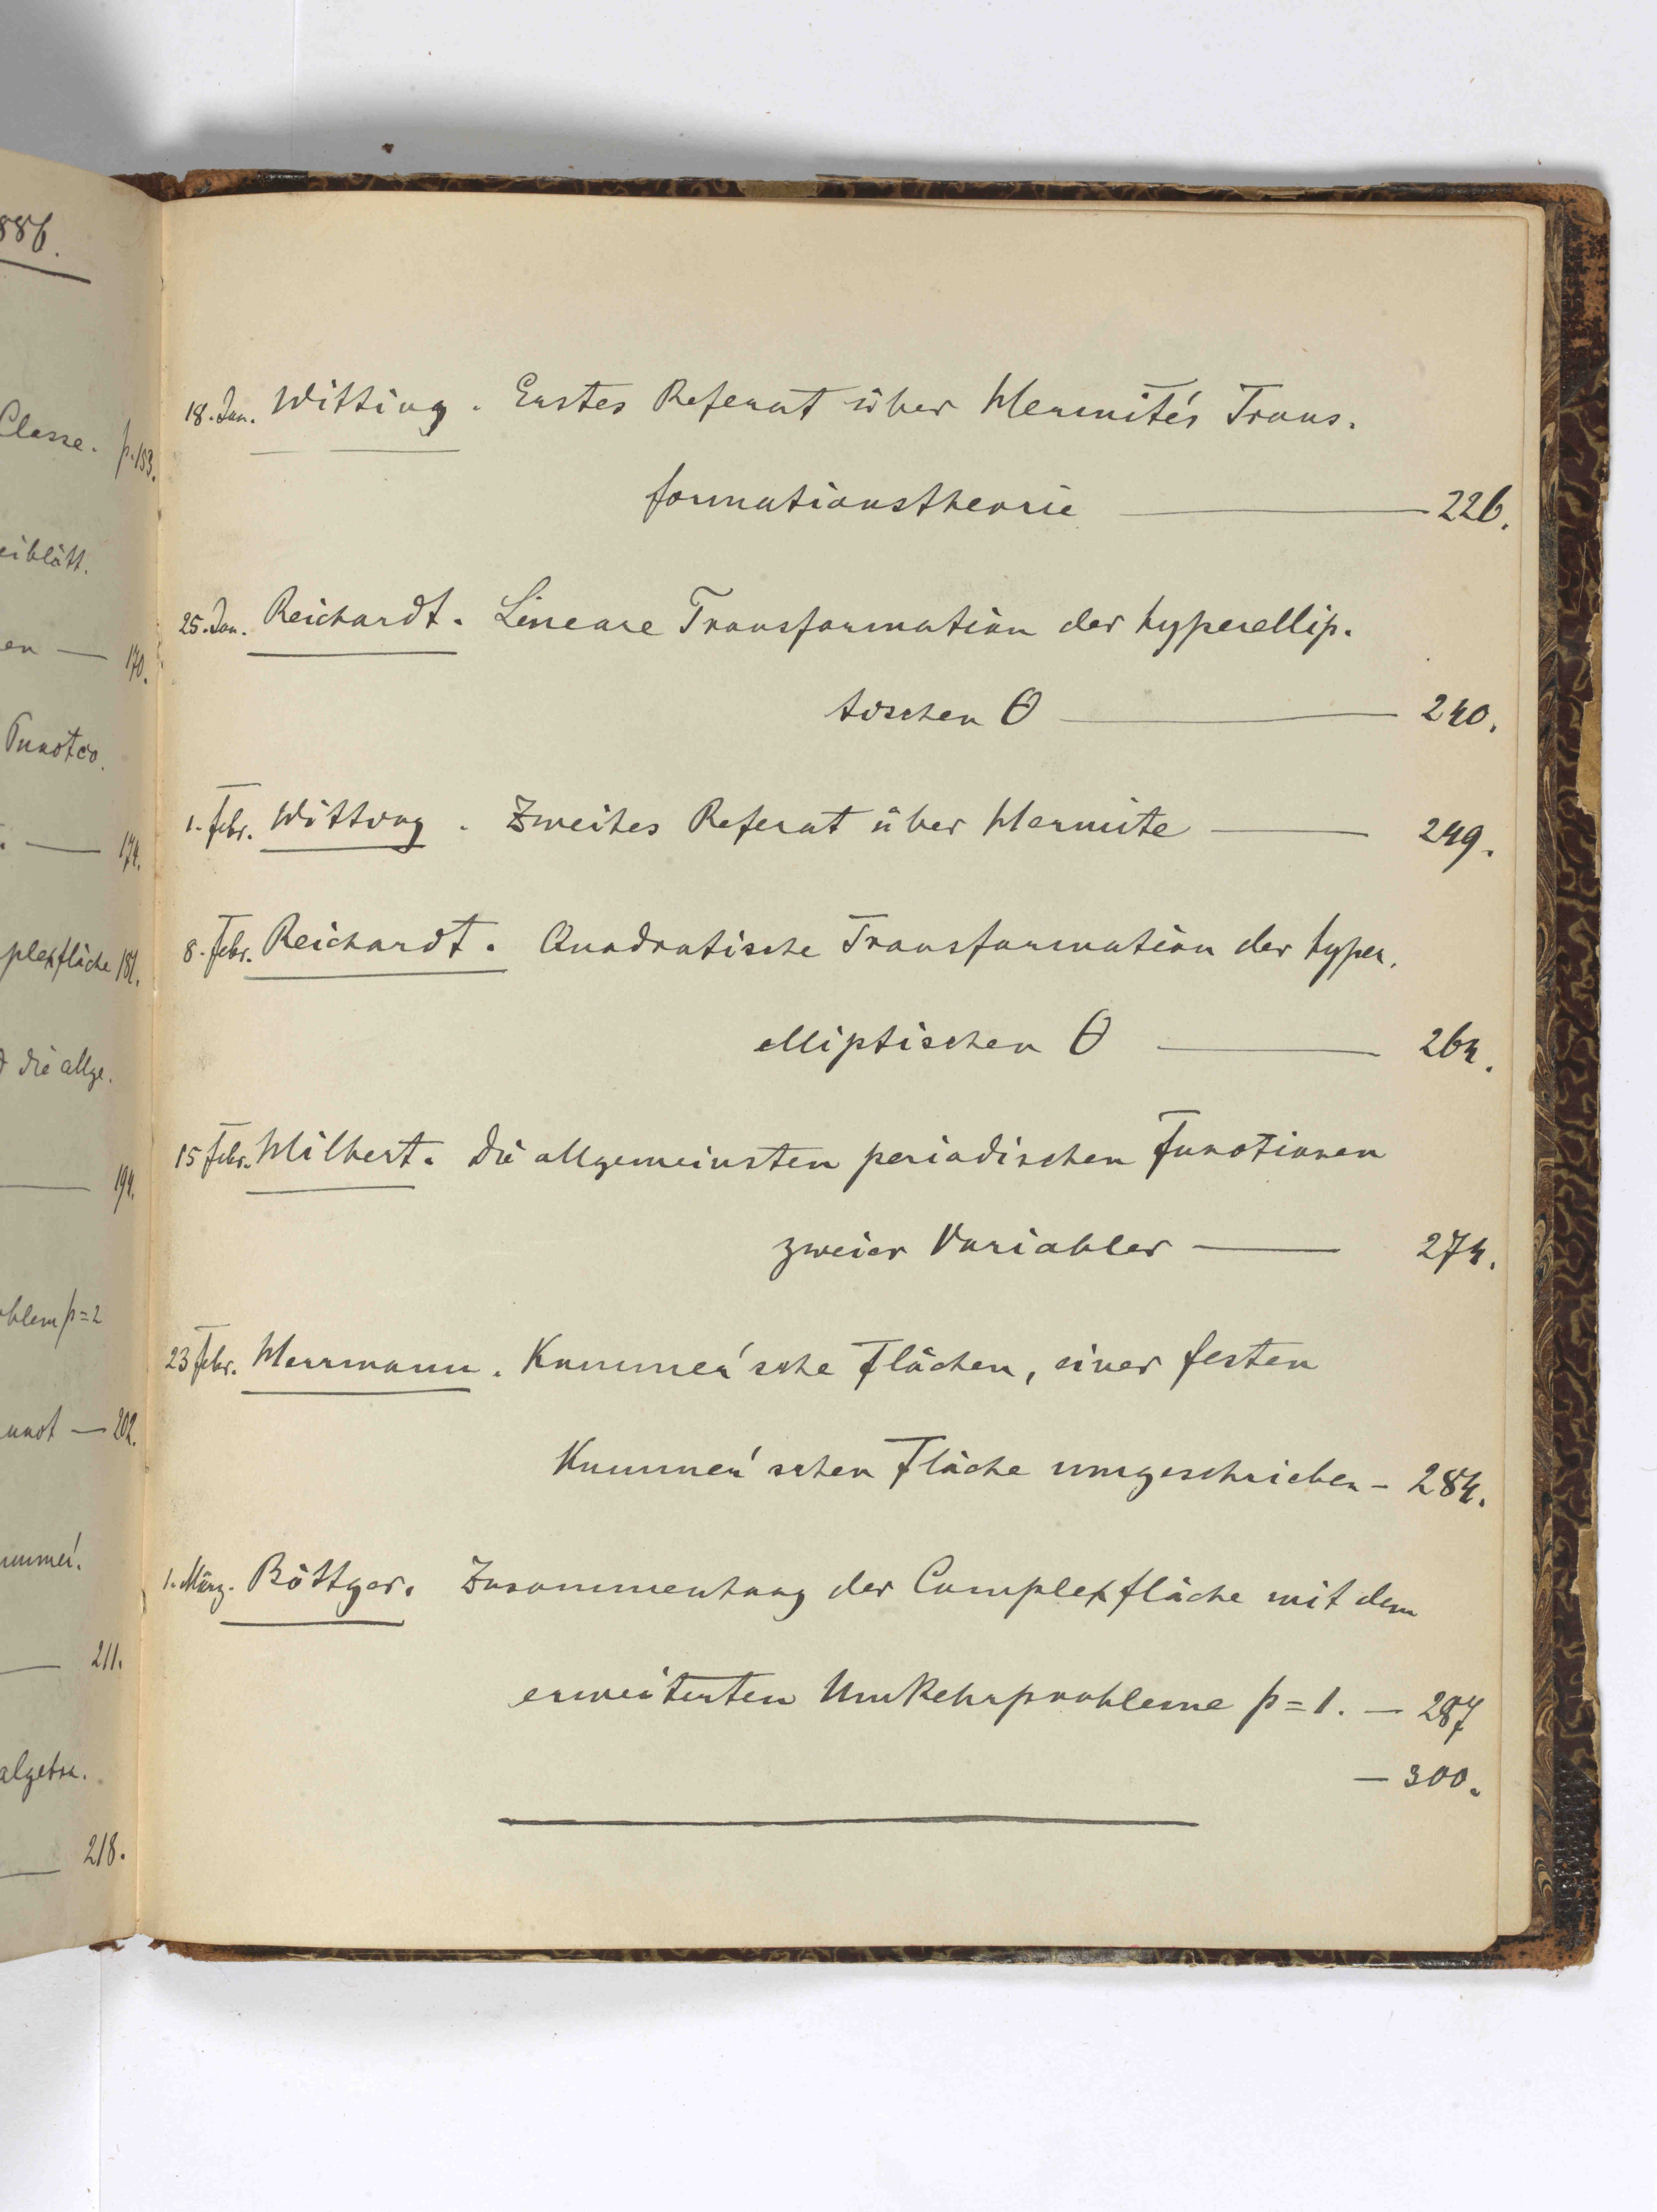 886.
Classe. p.153.
eiblätt.
en — 170.
Functio.
— 174.
plexfläche 181.
die allge.
— 194.
oblem p=2
unct — 202.
ummer'.
— 211.
algebr.
— 218.
18. Jan. Witting. Erstes Referat über Hermite's Trans-
formationstheorie — 226.
25. Jan. Reichardt. Lineare Transformation der hyperellip-
tischen Θ — 240.
1. Febr. Witting. Zweites Referat über Hermite — 249.
8. Febr. Reichardt. Quadratische Transformation der hyper-
elliptischen Θ — 264.
15 Febr. Hilbert. Die allgemeinsten periodischen Functionen
zweier Variabler — 274.
23 Febr. Herrmann. Kummer'sche Flächen, einer festen
Kummer'schen Fläche umgeschrieben — 284.
1. März. Böttger. Zusammenhang der Complexfläche mit dem
erweiterten Umkehrprobleme p = 1. — 287
— 300.